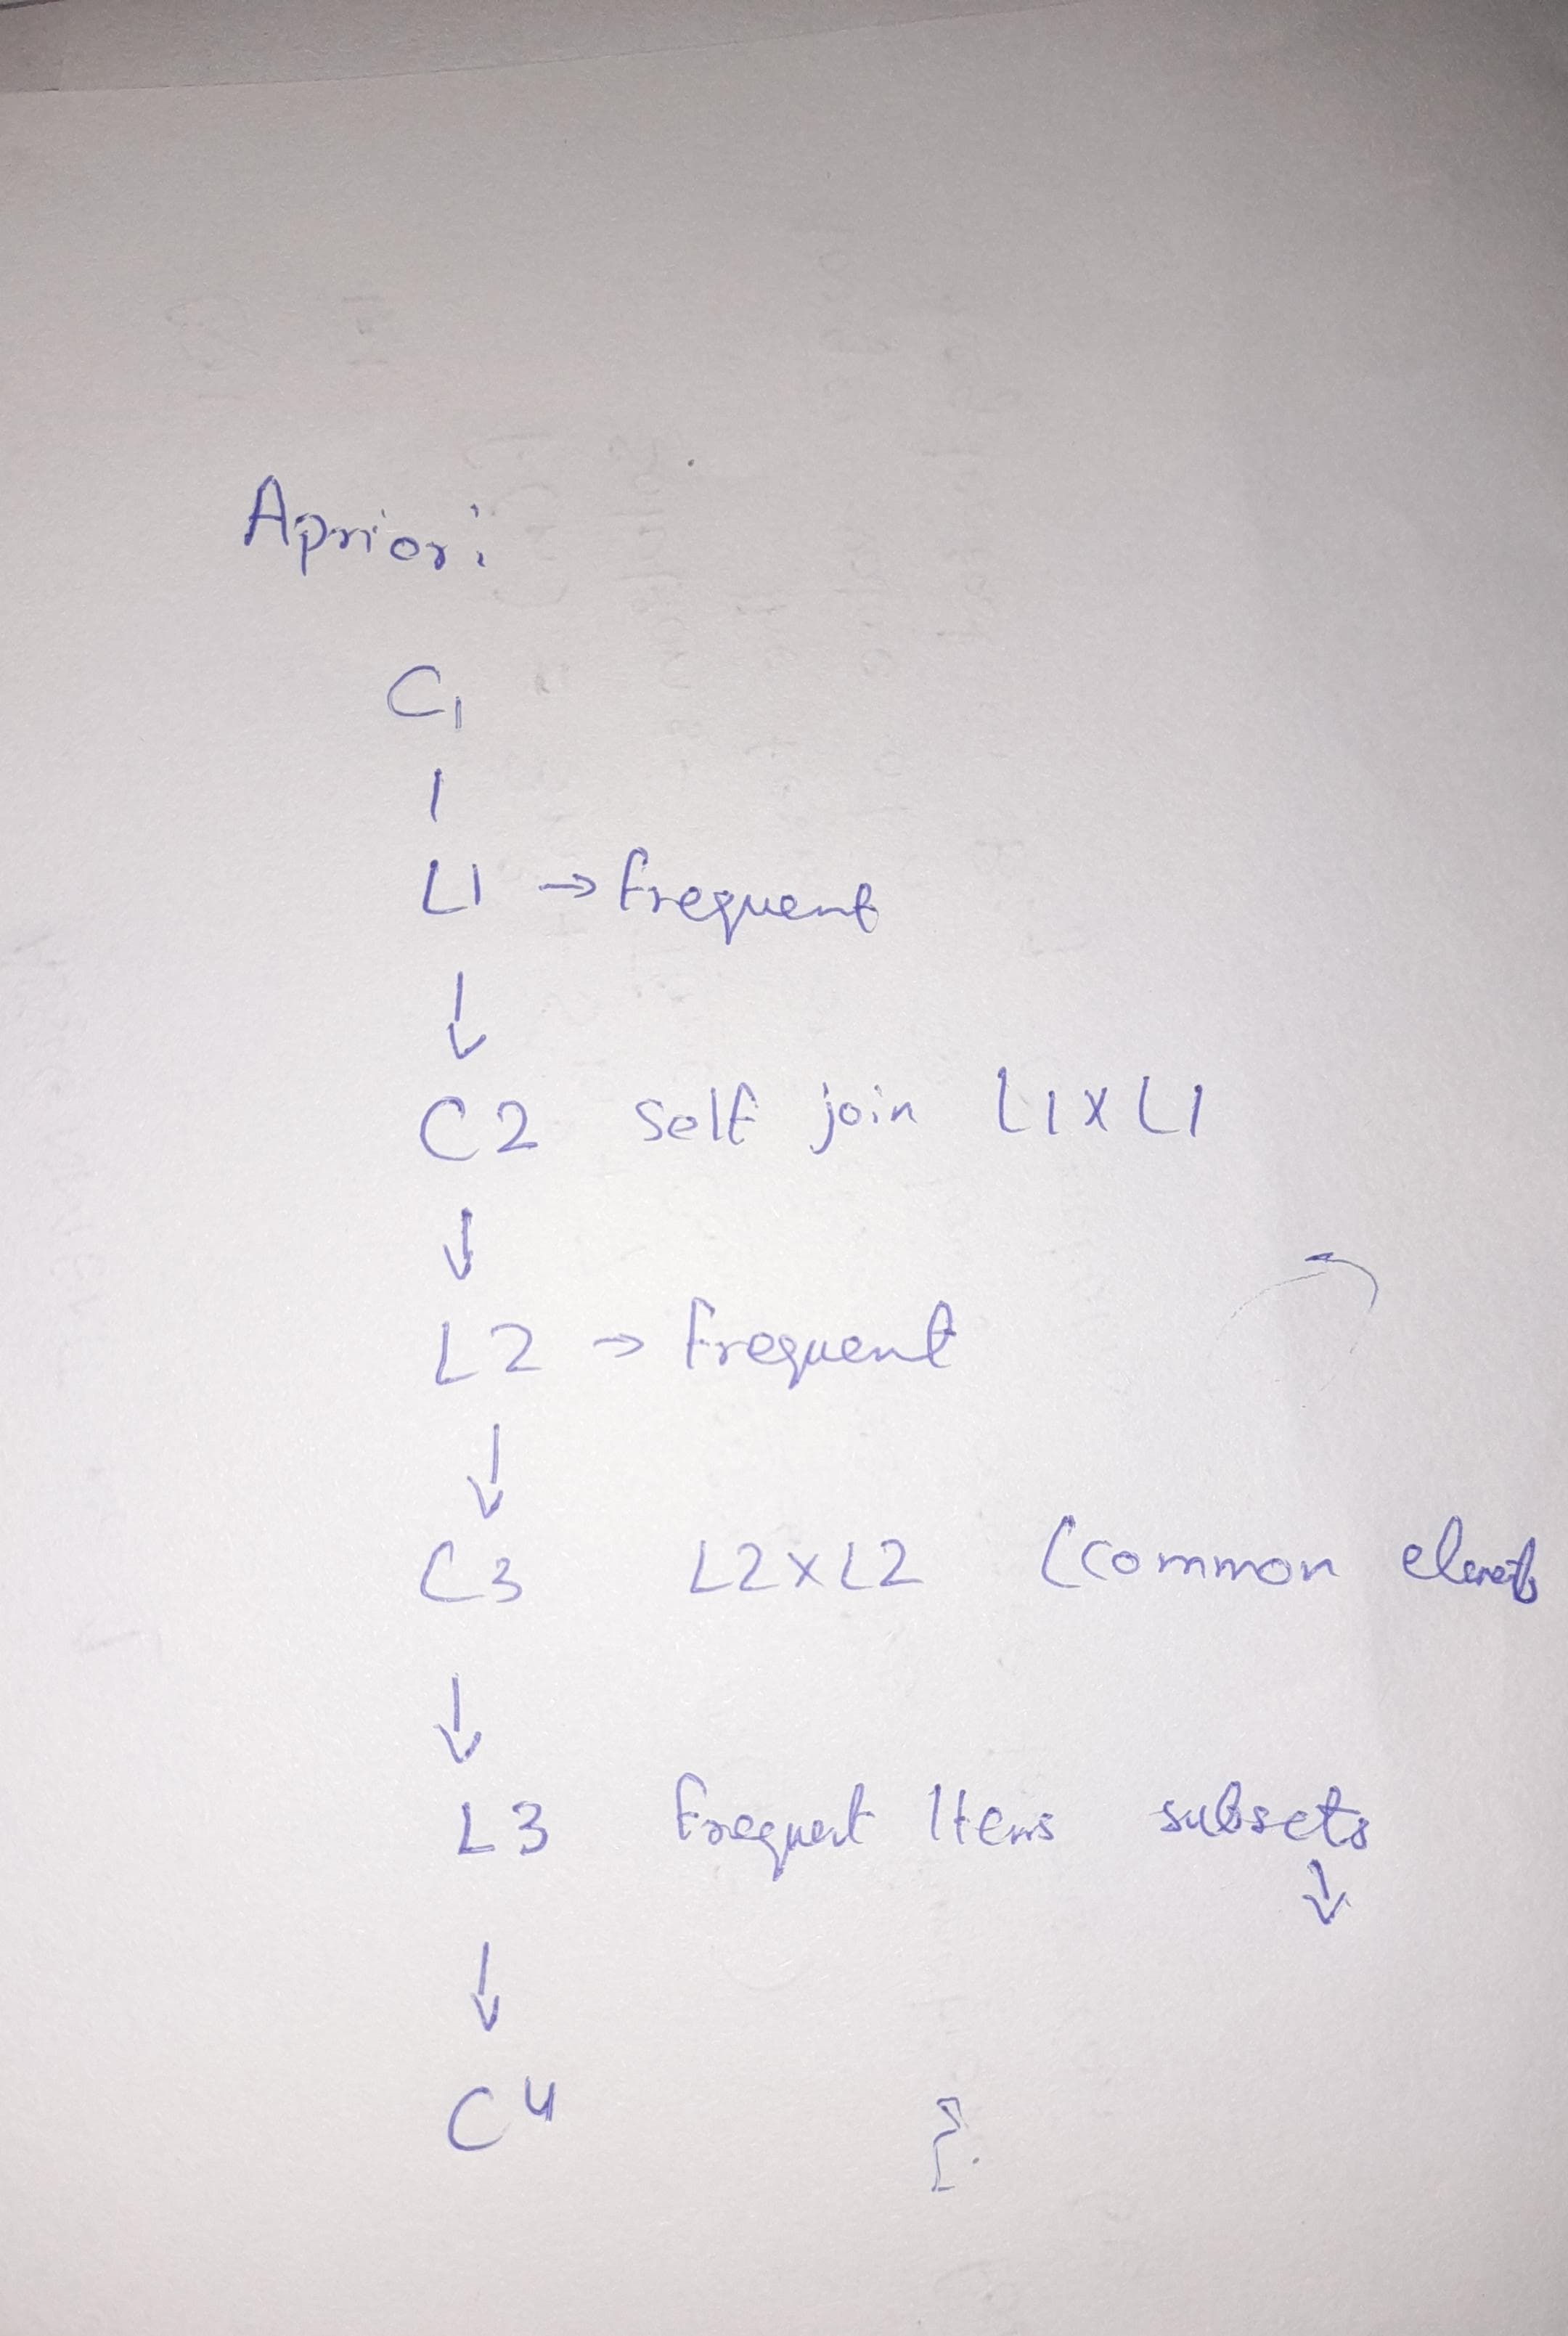 Apriori
C1
L1 → frequent
↓
C2 Self join L1XL1
↓
L2 → frequent
↓
C3 L2xL2 (common
↓
L3 frequent Items subsets
↓
↓
C4